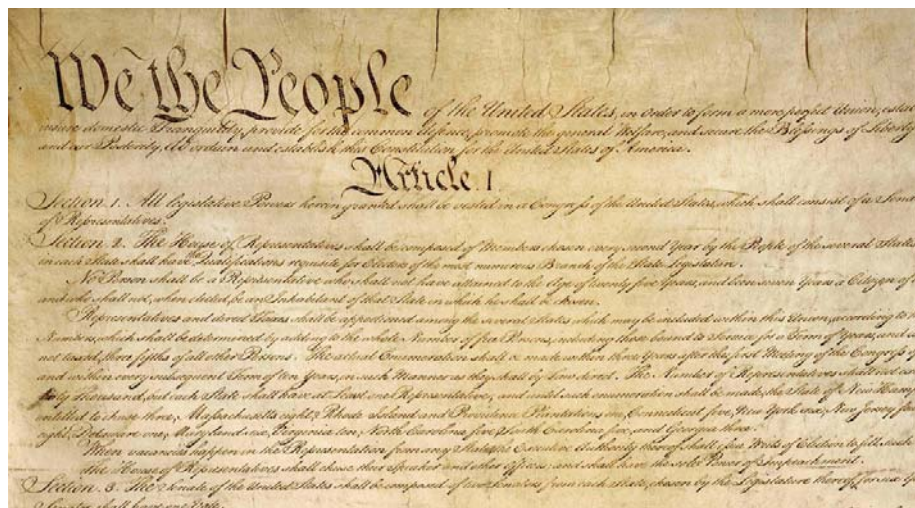 We the People of the United States, in Order to form a more perfect Union, estab
insure domestic Tranquility, provide for the common defence, promote the general Welfare, and secure the Blessings of Liberty
and our Posterity, do ordain and establish this Constitution for the United States of America.
Article. I.
Section. 1. All legislative Powers herein granted shall be vested in a Congress of the United States, which shall consist of a Sena
of Representatives.
Section. 2. The House of Representatives shall be composed of Members chosen every second Year by the People of the several States
in each State shall have the Qualifications requisite for Electors of the most numerous Branch of the State Legislature.
No Person shall be a Representative who shall not have attained to the Age of twenty five Years, and been seven Years a Citizen of
and who shall not, when elected, be an Inhabitant of that State in which he shall be chosen.
Representatives and direct Taxes shall be apportioned among the several States which may be included within this Union, according to
Numbers, which shall be determined by adding to the whole Number of free Persons, including those bound to Service for a Term of Years, and
not taxed, three fifths of all other Persons. The actual Enumeration shall be made within three Years after the first Meeting of the Congress
and within every subsequent Term of ten Years, in such Manner as they shall by Law direct. The Number of Representatives shall not
thirty Thousand, but each State shall have at Least one Representative; and until such enumeration shall be made, the State of New Hamp
entitled to chuse three, Massachusetts eight, Rhode Island and Providence Plantations one, Connecticut five, New York six, New Jersey
eight, Delaware one, Maryland six, Virginia ten, North Carolina five, South Carolina five, and Georgia three.
When vacancies happen in the Representation from any State, the Executive Authority thereof shall issue Writs of Election to fill such
The House of Representatives shall chuse their Speaker and other Officers; and shall have the sole Power of Impeachment.
Section. 3. The Senate of the United States shall be composed of two Senators from each State, chosen by the Legislature thereof, for six
Senator shall have one Vote.